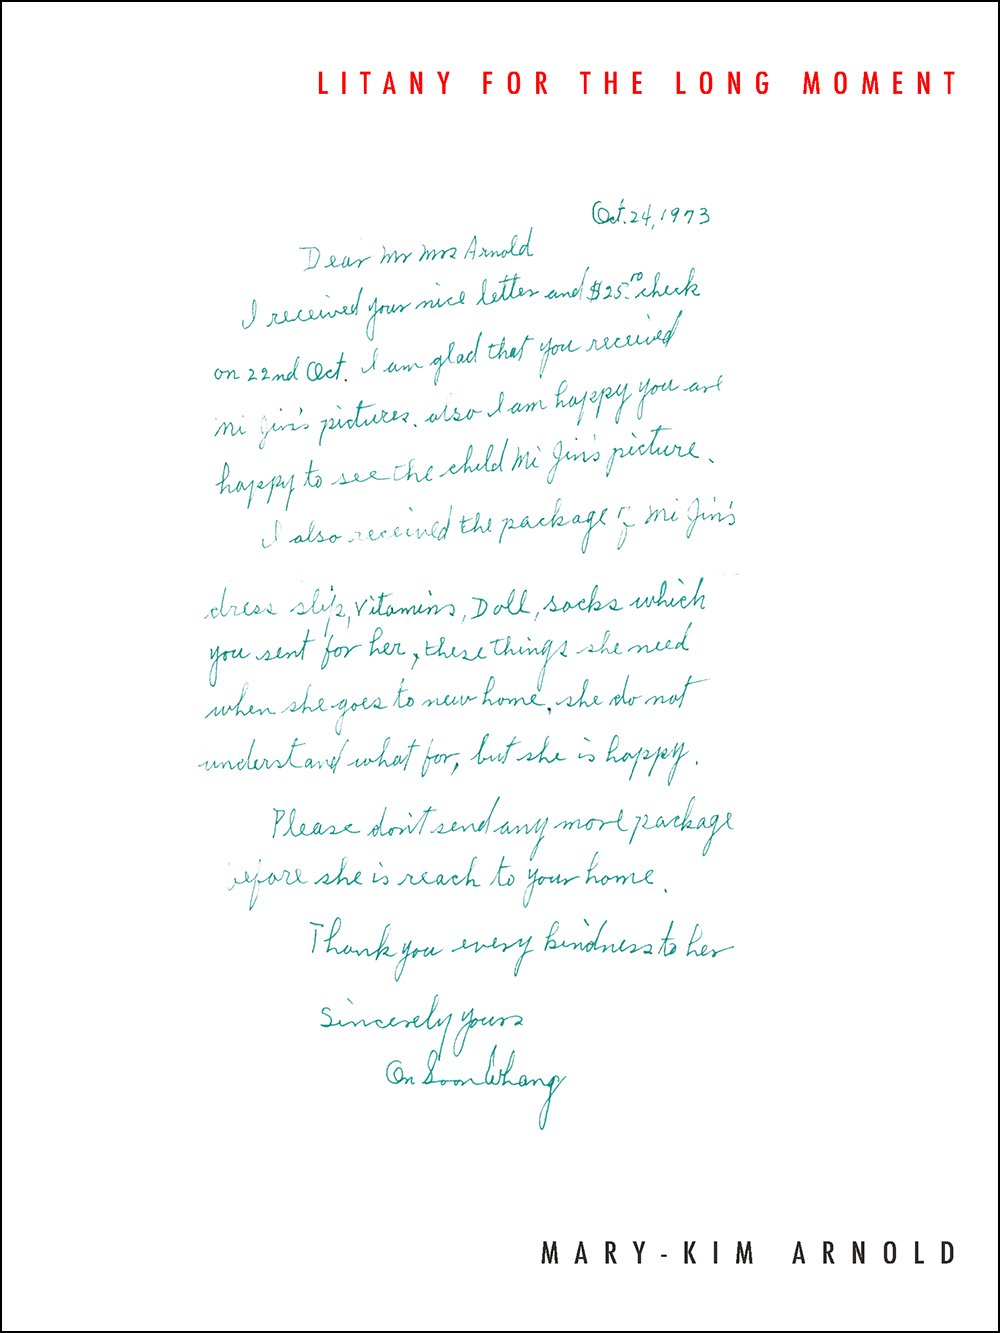 LITANY FOR THE LONG MOMENT
Oct. 24, 1973
Dear Mr Mrs Arnold
I received your nice letter and $25.00 check
on 22nd Oct. I am glad that you received
Mi Jin's pictures. also I am happy you are
happy to see the child Mi Jin's picture.
I also received the package of Mi Jin's
dress slip, vitamins, Doll, socks which
you sent for her, these things she need
when she goes to new home. she do not
understand what for, but she is happy.
Please don't send any more package
before she is reach to your home.
Thank you every kindness to her
Sincerely yours
On Soon Whang
MARY-KIM ARNOLD